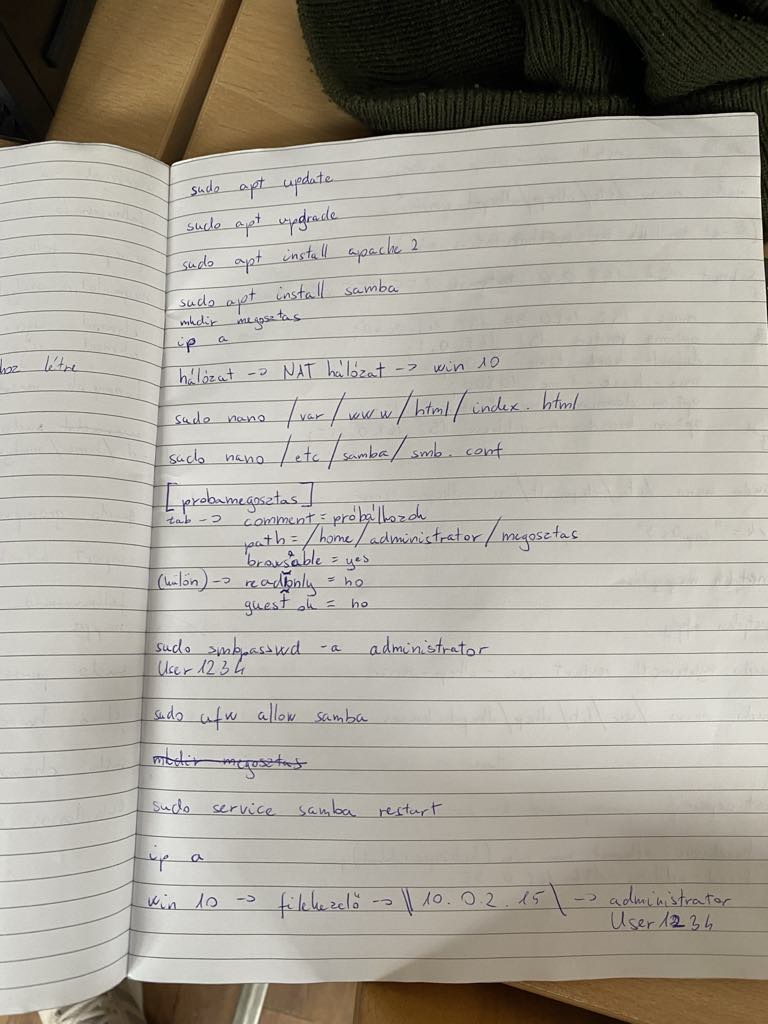 hoz létre
sudo apt update
sudo apt upgrade
sudo apt install apache2
sudo apt install samba
mkdir megosztas
ip a
hálózat -> NAT hálózat -> win 10
sudo nano /var/www/html/index.html
sudo nano /etc/samba/smb.conf
[probamegosztas]
tab -> comment = próbálkozok
path = /home/administrator/megosztas
browsable = yes
(külön) -> read only = no
guest ok = no
sudo smbpasswd -a administrator
User1234
sudo ufw allow samba
mkdir megosztas
sudo service samba restart
ip a
win 10 -> filekezelő -> \\10.0.2.15\ -> administrator
User1234